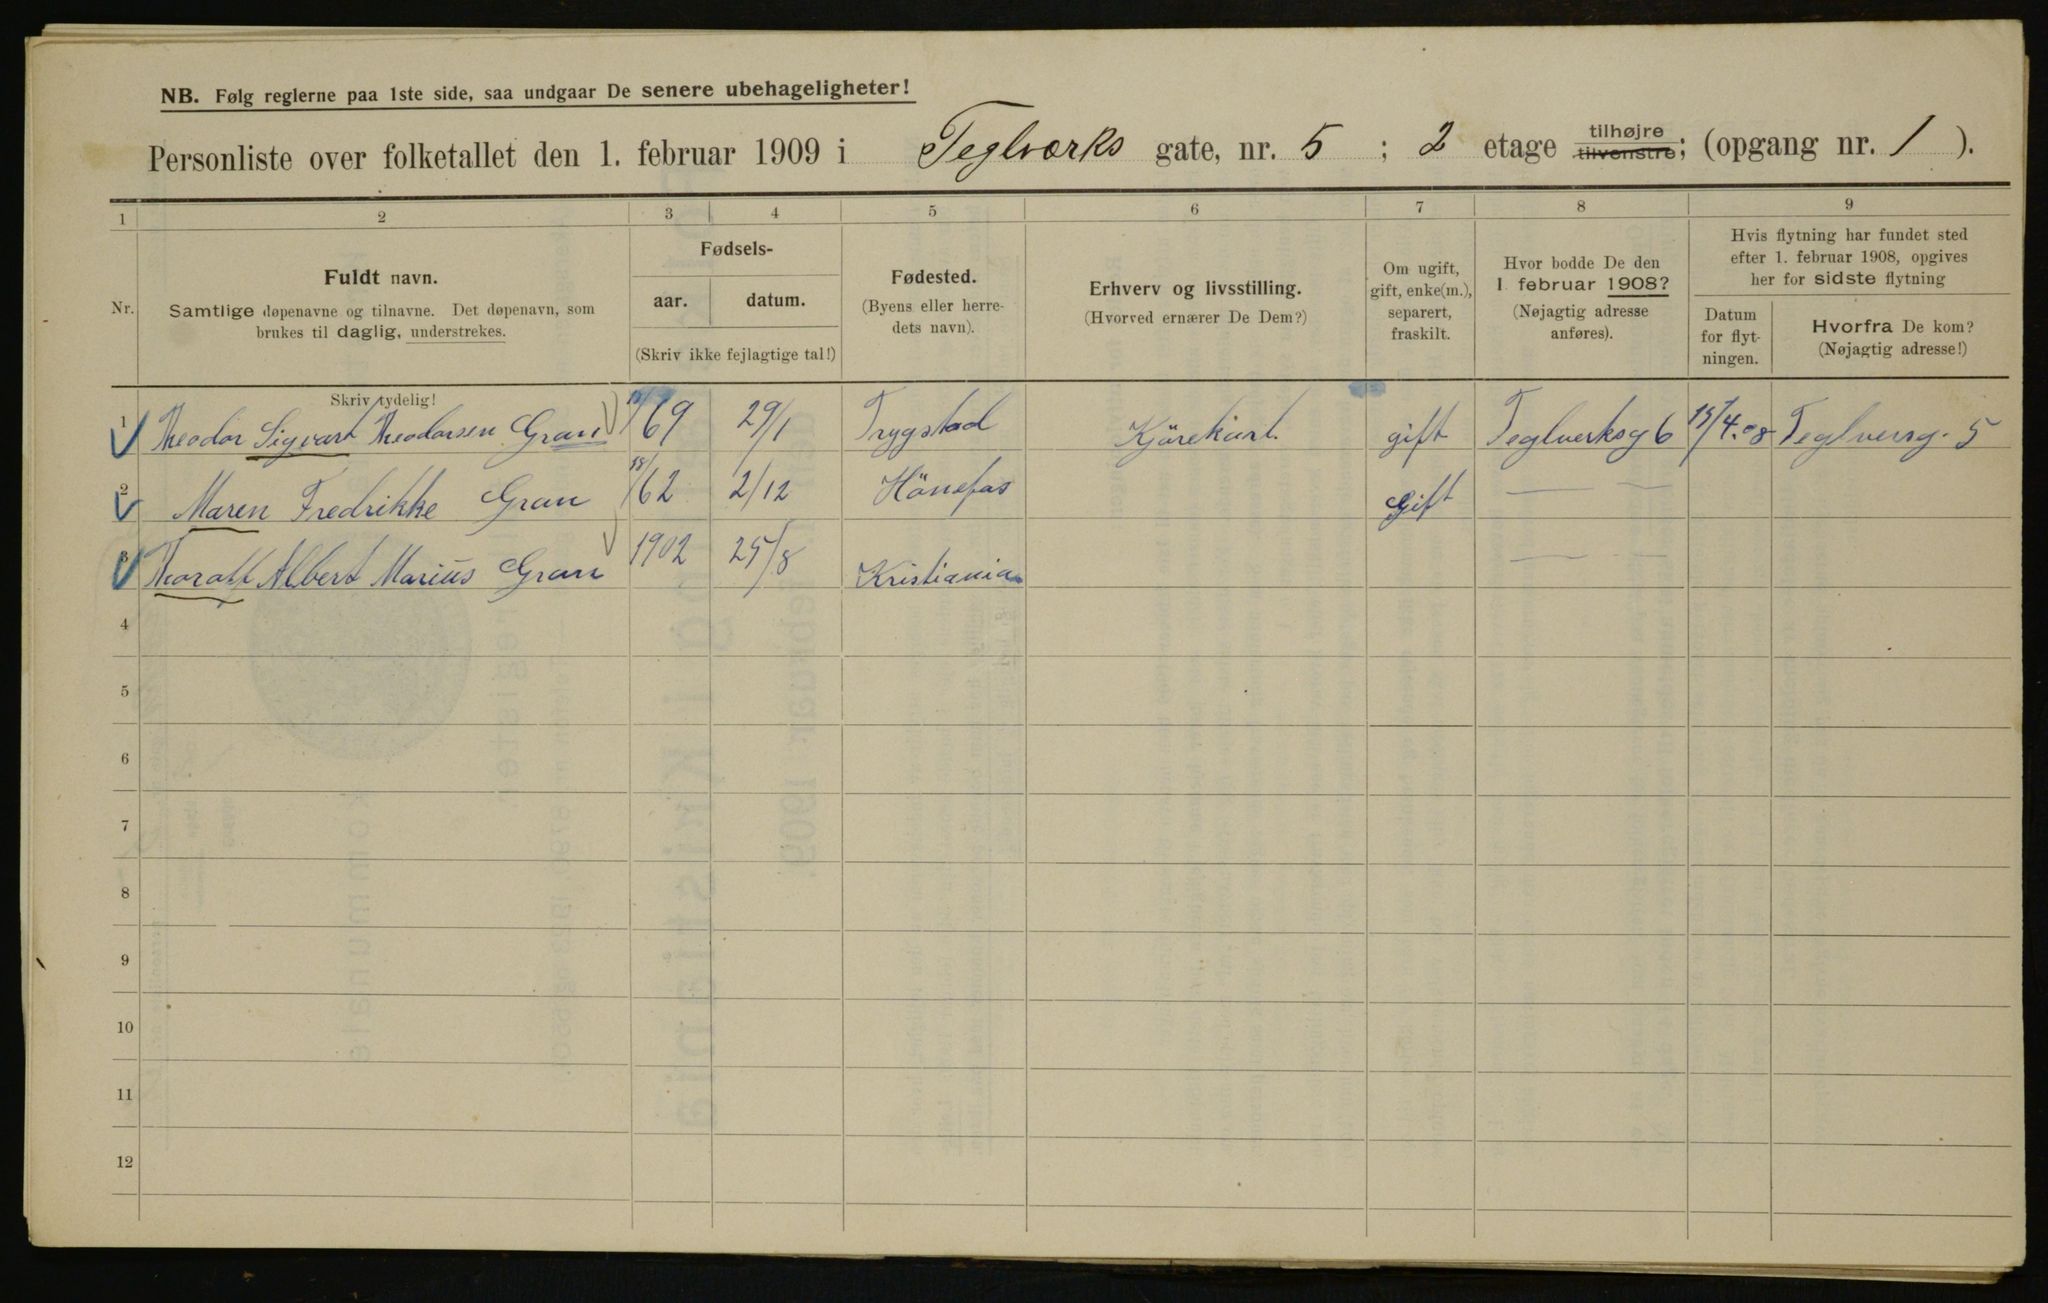 NB. Følg reglerne paa 1ste side, saa undgaar De senere ubehageligheter!
Personliste over folketallet den 1. februar 1909 i Teglværks gate, nr. 5 ; 2 etage tilhøjre tilvenstre; (opgang nr. 1 ).
1 2 3 4 5 6 7 8 9
Nr.
Fuldt navn.
Samtlige døpenavne og tilnavne. Det døpenavn, som
brukes til daglig, understrekes.
Fødsels-
aar. datum.
(Skriv ikke fejlagtige tal!)
Fødested.
(Byens eller herre-
dets navn).
Erhverv og livsstilling.
(Hvorved ernærer De Dem?)
Om ugift,
gift, enke(m.),
separert,
fraskilt.
Hvor bodde De den
1. februar 1908?
(Nøjagtig adresse
anføres).
Hvis flytning har fundet sted
efter 1. februar 1908, opgives
her for sidste flytning
Datum
for flyt-
ningen.
Hvorfra De kom?
(Nøjagtig adresse!)
Skriv tydelig!
1 Theodor Sigvart Theodorsen Gran 18/69 29/1 Trygstad Kjörekarl. gift Teglverksg 6 15/4.08 Teglversg. 5
2 Maren Fredrikke Gran 18/62 2/12 Hönefos Gift — —
3 Thoralf Albert Marius Gran 1902 25/8 Kristiania — —
4
5
6
7
8
9
10
11
12